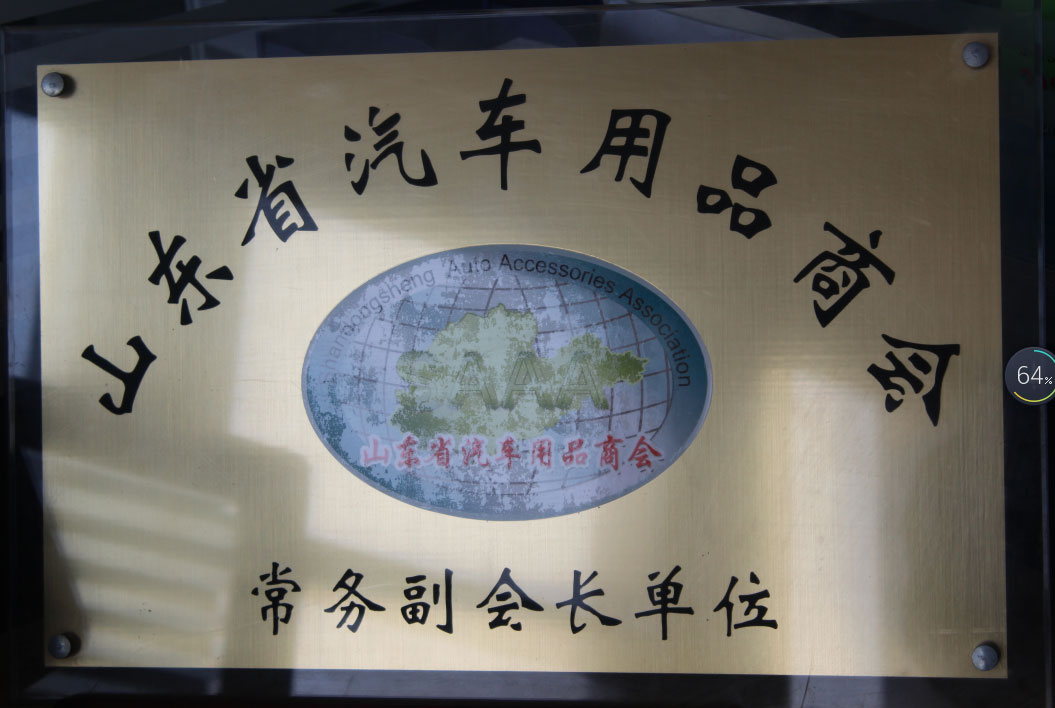 山东省汽车用品商会
Shandongsheng Auto Accessories Association
SAAA
山东省汽车用品商会
常务副会长单位
64%